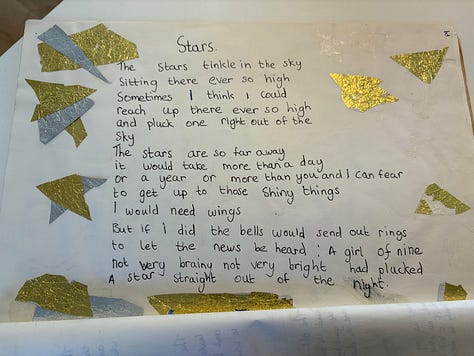 Stars.
The stars tinkle in the sky
Sitting there ever so high
Sometimes I think I could
reach up there ever so high
and pluck one right out of the
Sky
The stars are so far away
it would take more than a day
or a year or more than you and I can fear
to get up to those Shiny things
I would need wings
But if I did the bells would send out rings
to let the news be heard : A girl of nine
not very brainy not very bright had plucked
A star straight out of the night.